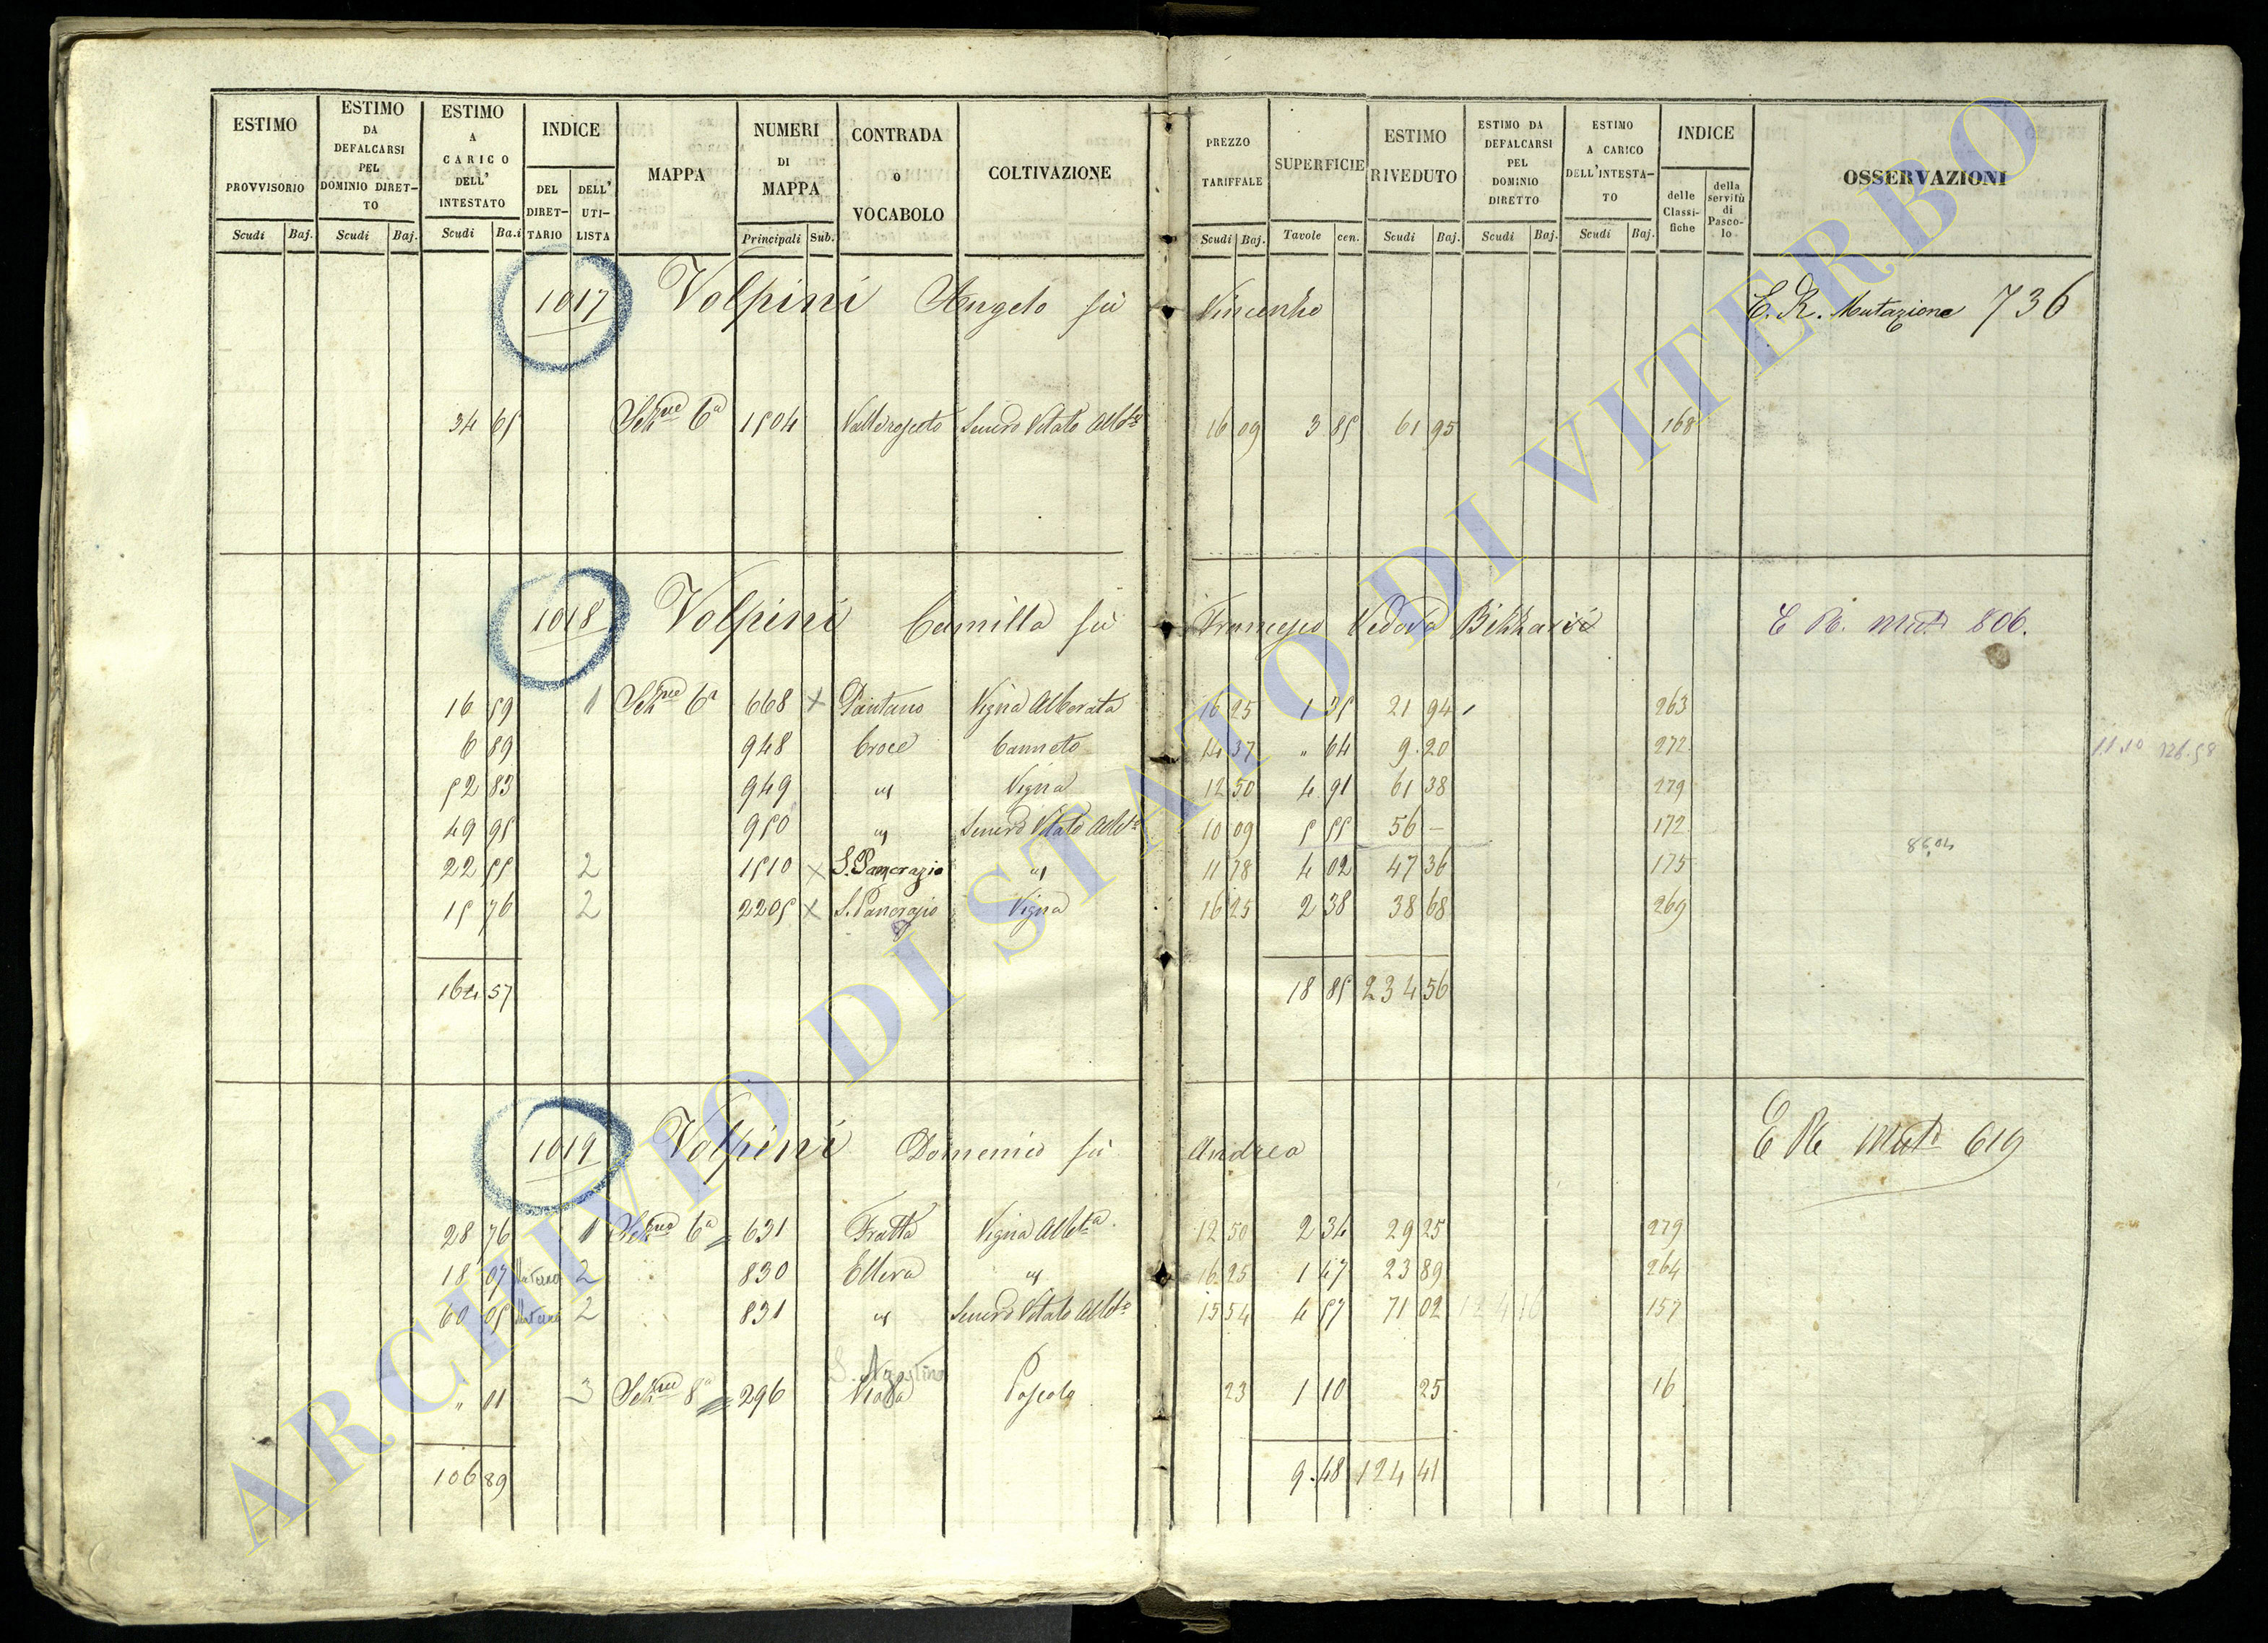 ESTIMO PROVVISORIO Scudi Baj.
ESTIMO DA DEFALCARSI PEL DOMINIO DIRET-TO Scudi Baj.
ESTIMO A CARICO DELL' INTESTATO Scudi Ba.i
INDICE DEL DIRET-TARIO DELL' UTI-LISTA
MAPPA
NUMERI DI MAPPA Principali Sub.
CONTRADA O VOCABOLO
COLTIVAZIONE
PREZZO TARIFFALE Scudi Baj.
SUPERFICIE Tavole cen.
ESTIMO RIVEDUTO Scudi Baj.
ESTIMO DA DEFALCARSI PEL DOMINIO DIRETTO Scudi Baj.
ESTIMO A CARICO DELL'INTESTA-TO Scudi Baj.
INDICE delle Classi-fiche della servitù di Pasco-lo
OSSERVAZIONI
1017 Volpini Angelo fù Vincenzo E. R. Mutazione 736
34 65 Sez.ne 6a 1504 Semvo Vitato Alb.to 16 09 3 85 61 95 168
1018 Volpini Camilla fù Francesco Vedova E R. Mut. 806.
16 59 1 Sez.ne 6a 668 x Pantano Vigna Alberata 16 25 1 35 21 94 263
6 89 948 Croce Canneto 14 37 " 64 9.20 272
52 83 949 " Vigna 12 50 4 91 61 38 279
49 95 950 " Semvo Vitato Alb.to 10 09 5 55 56 – 172
22 55 2 1510 x S. Pancrazio " 11 78 4 02 47 36 175
15 76 2 2205 x S. Pancrazio Vigna 16 25 2 38 38 68 269
164 57 18 85 234 56
1019 Volpini Domenico fù Andrea E R Mut. 619
28 76 1 Sez.ne 6a 631 Fratta Vigna Alb.ta 12 50 2 34 29 25 279
18 07 Materno 2 830 Ellera " 16 25 1 47 23 89 264
60 05 Materno 2 831 " Semvo Vitato Alb.to 15 54 4 57 71 02 124 16 157
S. Agostino
" 01 3 Sez.ne 8a 296 Pascolo 23 1 10 25 16
106 89 9.48 124 41
ARCHIVIO DI STATO DI VITERBO